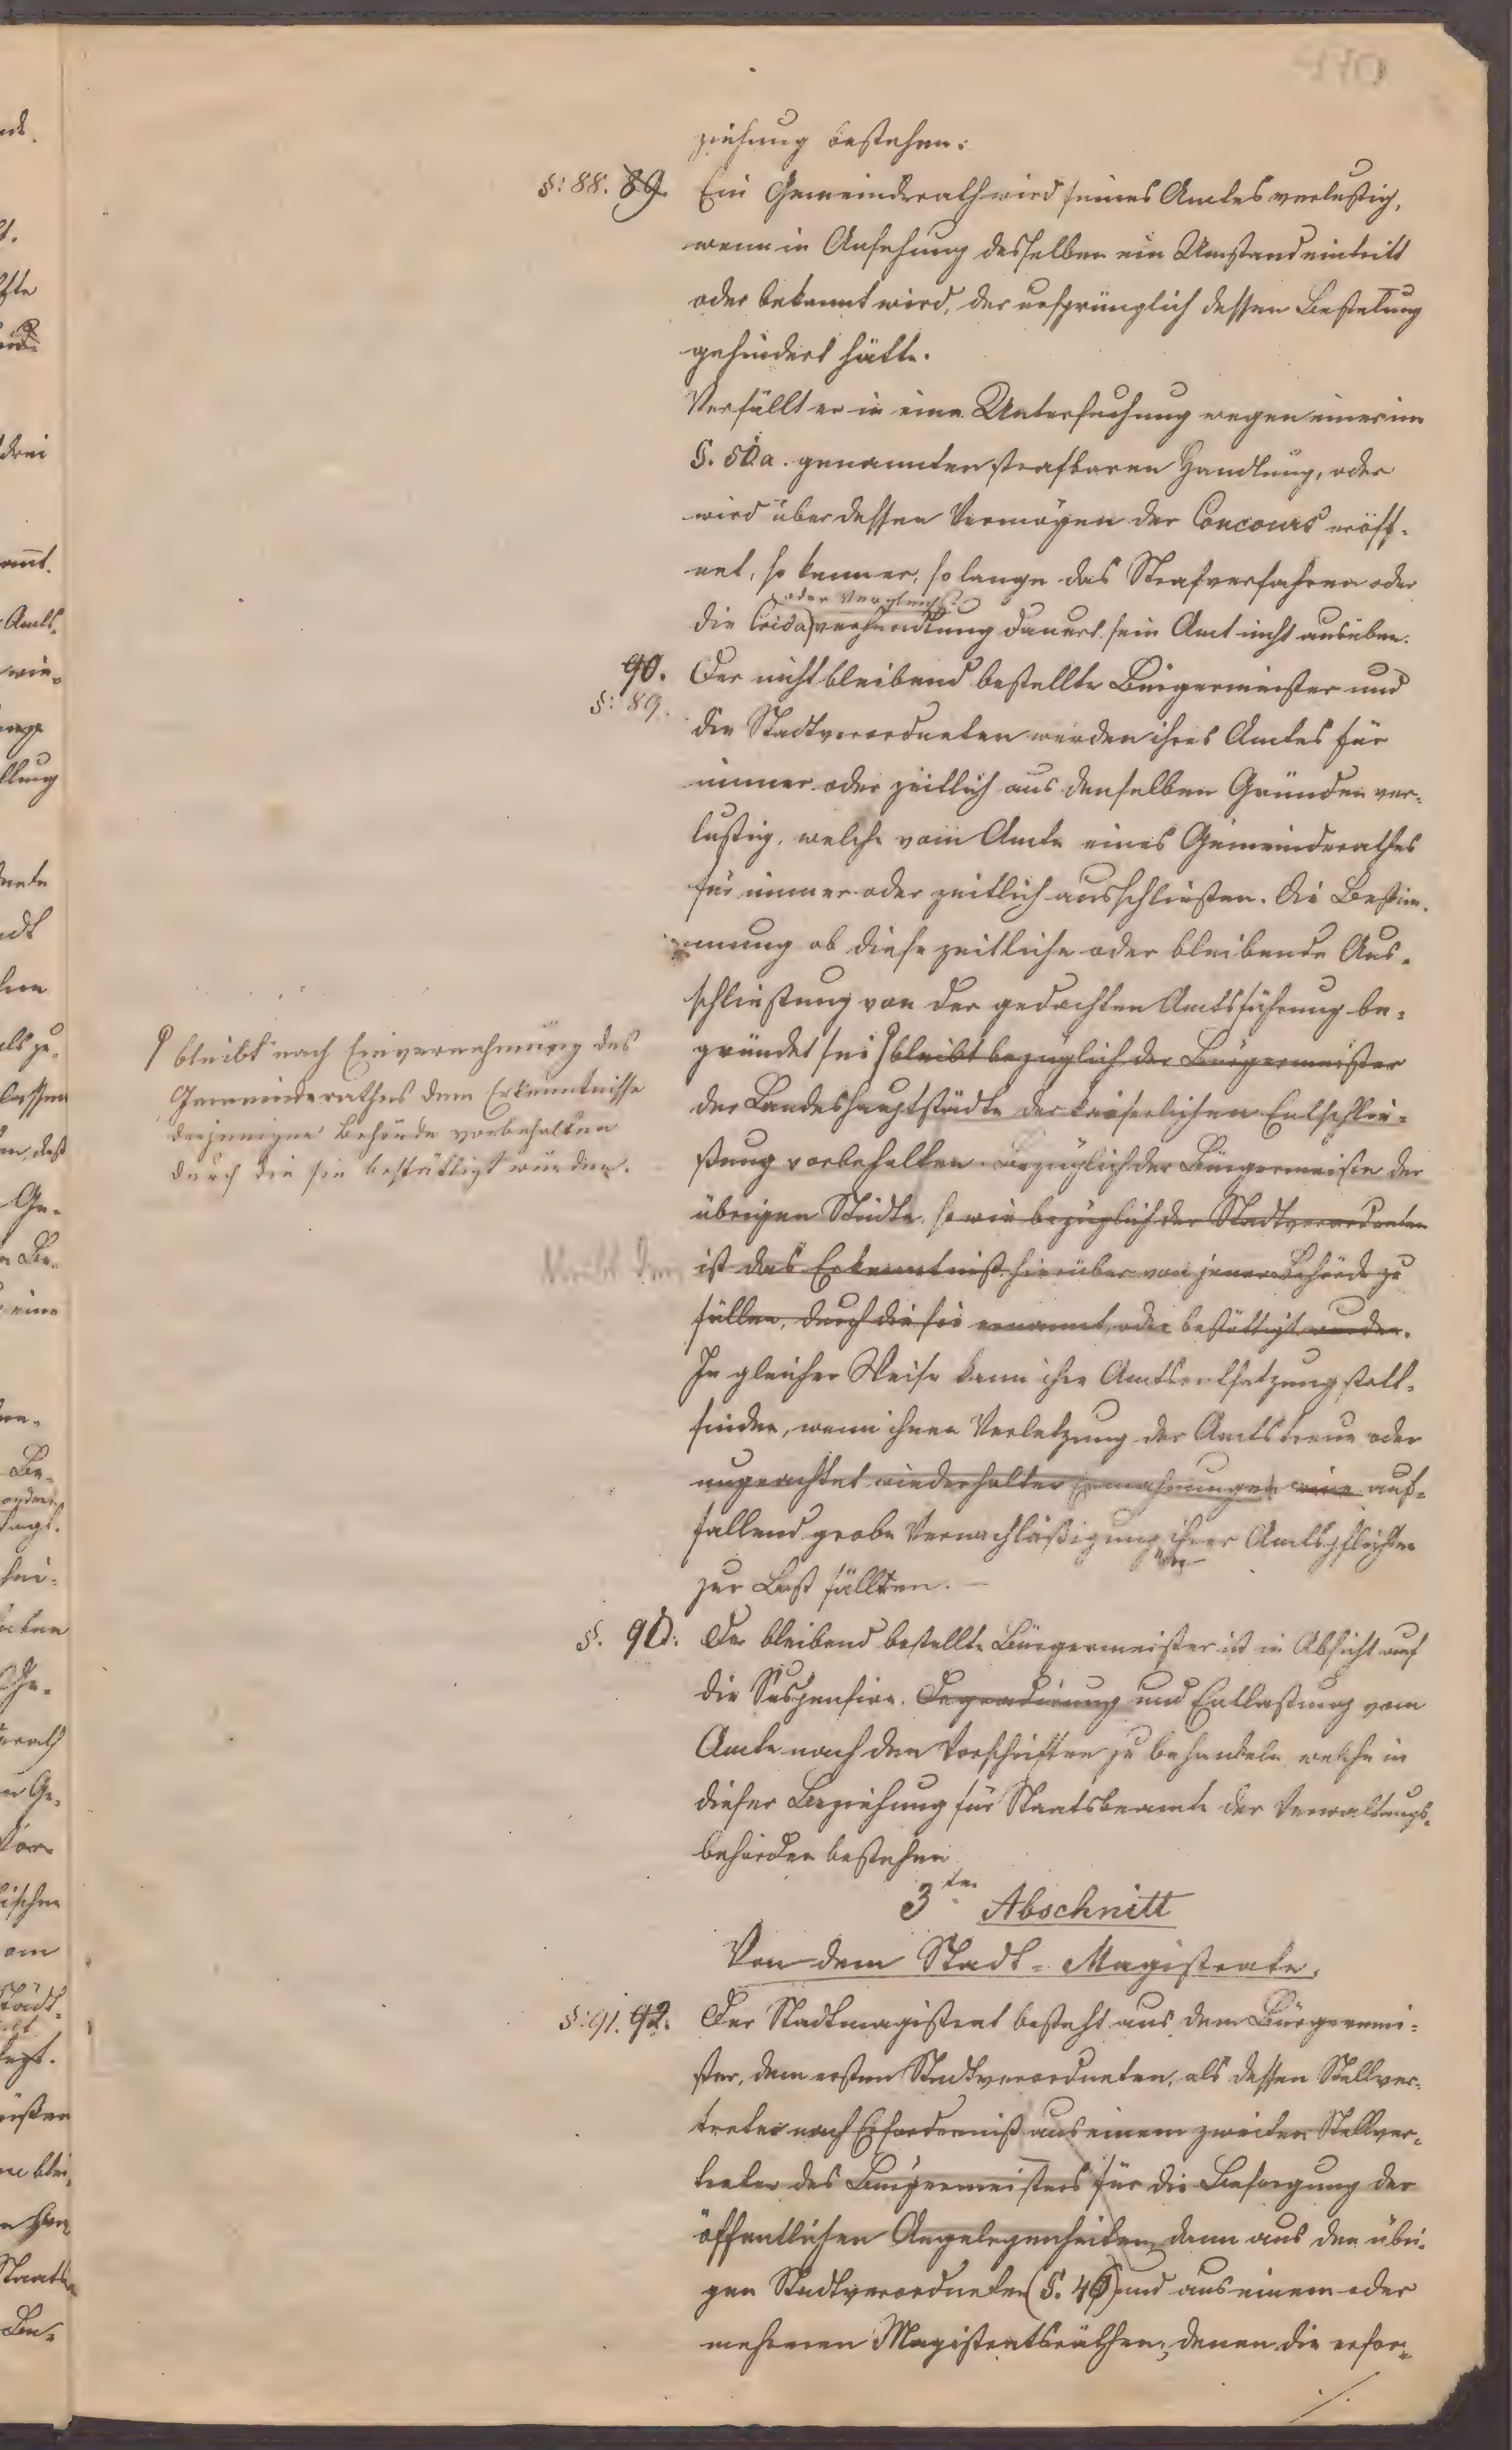 ziehung bestehen.
§: 88. 89. Ein Gemeinderath wird seines Amtes verlustig,
wenn in Ansehung desselben ein Umstand eintritt
oder bekannt wird, der ursprünglich dessen Bestellung
gehindert hätte.
Verfällt er in eine Untersuchung wegen einer im
§. 50. a. genannten strafbaren Handlung, oder
wird über dessen Vermögen der Concours eröff-
net, so kann er, so lange das Strafverfahren oder
oder Vergleichs-
die Crida verhandlung dauert, sein Amt nicht ausüben.
90. Der nicht bleibend bestellte Bürgermeister und
§: 89.
die Stadtverordneten werden ihres Amtes für
immer oder zeitlich aus denselben Gründen ver-
lustig, welche vom Amte eines Gemeinderathes
für immer oder zeitlich ausschließen. Die Bestim-
mung ob diese zeitliche oder bleibende Aus-
schließung von der gedachten Amtsführung be-
gründet sei bleibt bezüglich der Bürgermeister
der Landeshauptstädte der kaiserlichen Entschlie-
ßung vorbehalten. Bezüglich der Bürgermeister der
übrigen Städte, so wie bezüglich der Stadtverordneten
ist das Erkenntniß hierüber von jener Behörde zu
fällen, durch die sie ernannt, oder bestättigt wurden.
bleibt nach Einvernehmung des
Gemeinderathes dem Erkenntnisse
derjenigen Behörde vorbehalten
durch die sie bestättigt wurden.
In gleicher Weise kann ihre Amtsentsetzung statt-
finden, wenn ihnen Verletzung der Amtstreue oder
ungeachtet wiederholter Ermahnungen eine auf-
fallend grobe Vernachläßigung ihrer Amtspflichten
zur Last fällten.
§. 90. Der bleibend bestellte Bürgermeister ist in Absicht auf
die Suspension, Degradirung und Entlassung vom
Amte nach den Vorschriften zu behandeln, welche in
dieser Beziehung für Staatsbeamte der Verwaltungs-
behörden bestehen
3ter Abschnitt
Von dem Stadt-Magistrate.
§: 91. 92. Der Stadtmagistrat besteht aus dem Bürgermei-
ster, dem ersten Stadtverordneten, als dessen Stellver-
treter nach Erforderniß aus einem zweiten Stellver-
treter des Bürgermeisters für die Besorgung der
öffentlichen Angelegenheiten, dann aus den übri-
gen Stadtverordneten (§. 46) und aus einem oder
mehreren Magistratsräthen, denen die erfor-